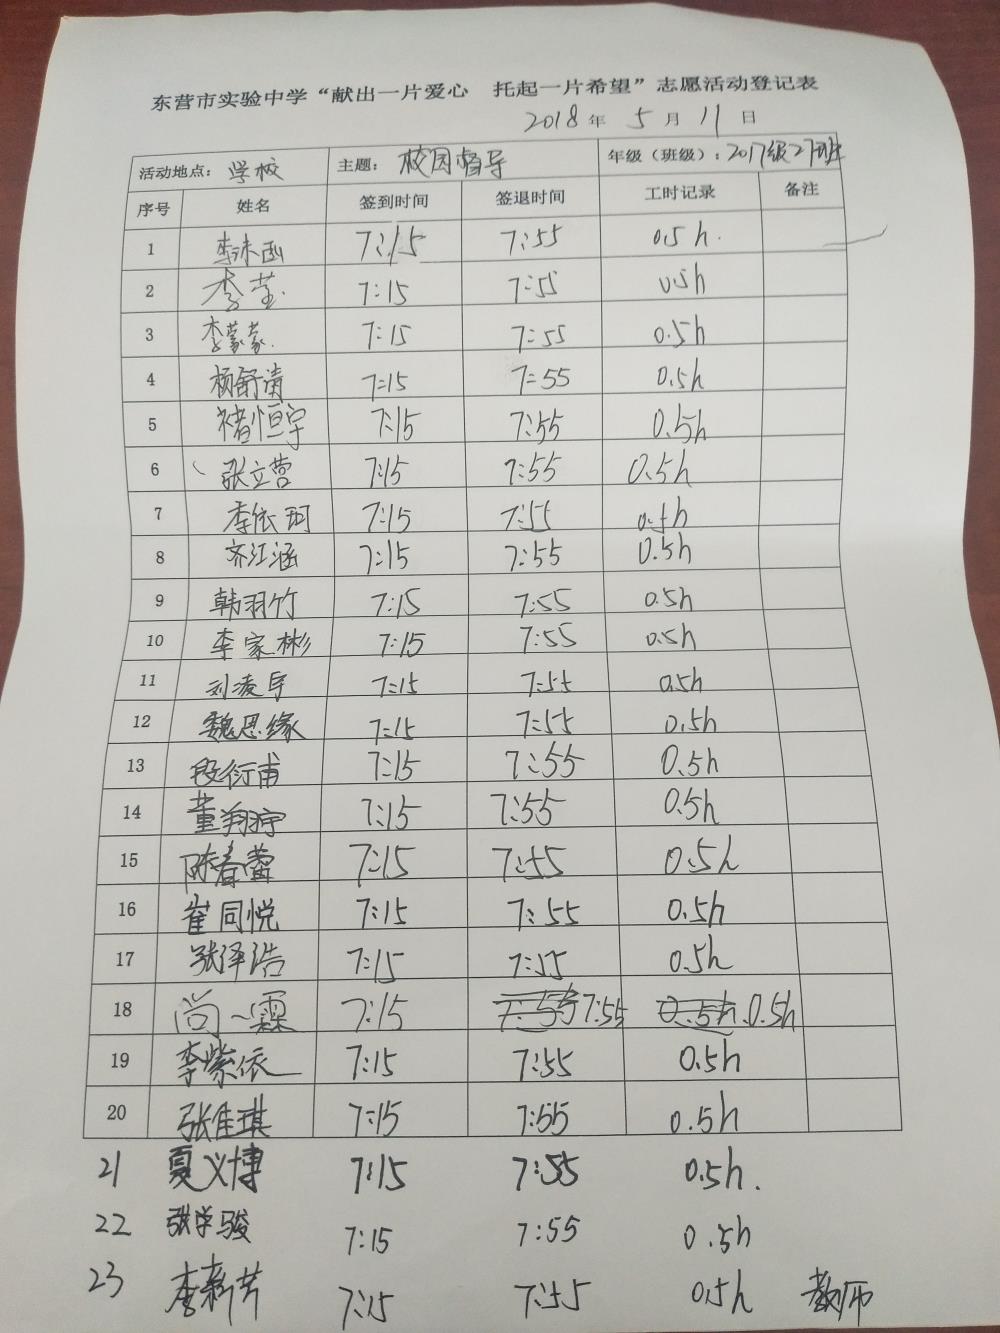 东营市实验中学“献出一片爱心 托起一片希望”志愿活动登记表
2018年 5月 11日
活动地点：学校 主题：校园督导 年级（班级）：2017级27班
序号 姓名 签到时间 签退时间 工时记录 备注
1 李沐函 7:15 7:55 0.5h.
2 李莹 7:15 7:55 0.5h
3 李蒙蒙 7:15 7:55 0.5h
4 杨舒清 7:15 7:55 0.5h
5 褚恒宇 7:15 7:55 0.5h
6 张立营 7:15 7:55 0.5h
7 李依珂 7:15 7:55 0.5h
8 齐江涵 7:15 7:55 0.5h
9 韩羽竹 7:15 7:55 0.5h
10 李家彬 7:15 7:55 0.5h
11 刘凌 7:15 7:55 0.5h
12 魏思缘 7:15 7:55 0.5h
13 段衍甫 7:15 7:55 0.5h
14 董翔宇 7:15 7:55 0.5h
15 陈春蕾 7:15 7:55 0.5h
16 崔同悦 7:15 7:55 0.5h
17 张泽浩 7:15 7:55 0.5h
18 尚一霖 7:15 7:55 7:55 0.5h 0.5h
19 李紫依 7:15 7:55 0.5h
20 张佳琪 7:15 7:55 0.5h
21 夏义博 7:15 7:55 0.5h.
22 张学骏 7:15 7:55 0.5h
23 李新芳 7:15 7:55 0.5h 教师